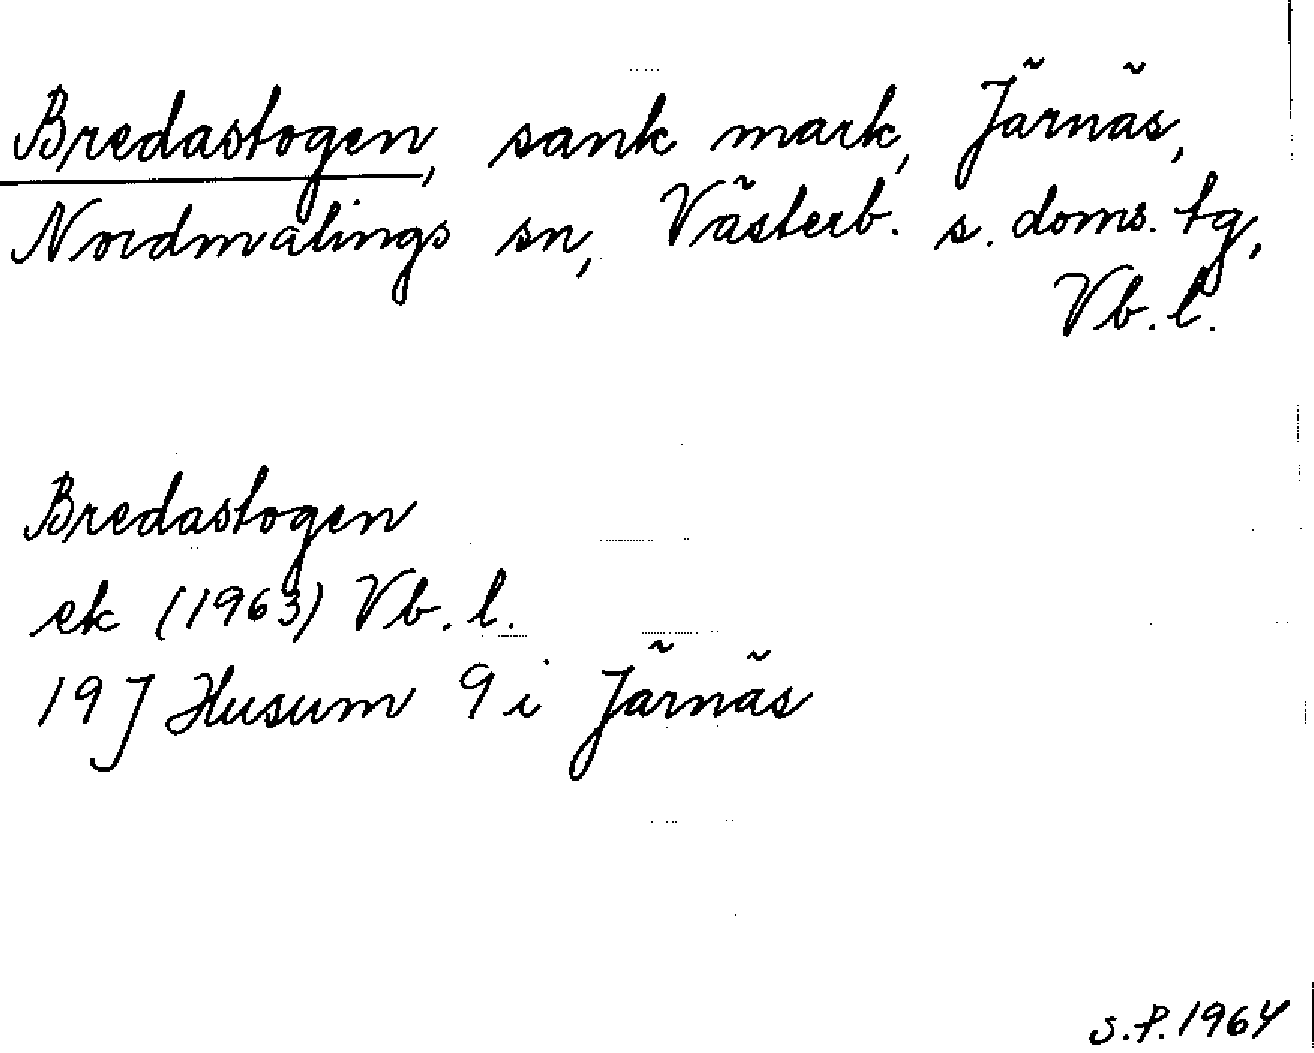 Bredastogen, sank mark, Järnäs,
Nordmalings sn, Västerb. s. doms. tg,
Vb. l.
Bredastogen
ek (1963) Vb. l.
19 J Husum 9 i Järnäs
S.P. 1964